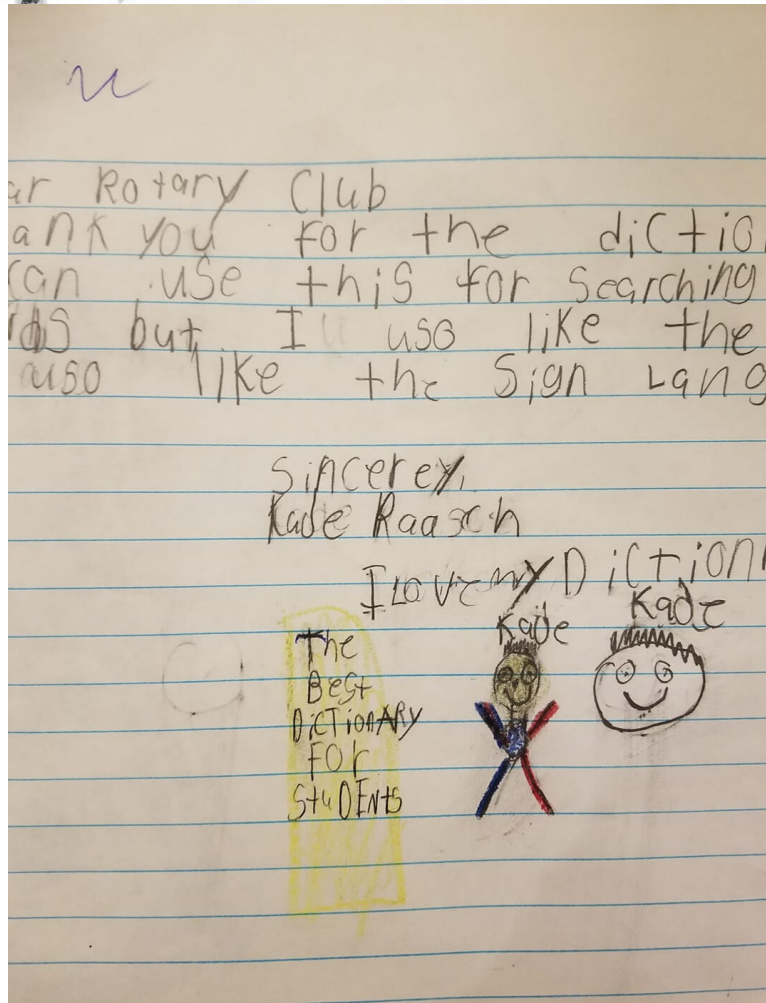 u
ar Rotary Club
ank you for the dictio
can use this for searching
ds but I uso like the
uso like the Sign Lang
Sincerey,
Kade Raasch
I Love my Diction
Kade
Kade
The
Best
DicTionARY
FOR
StuDENts